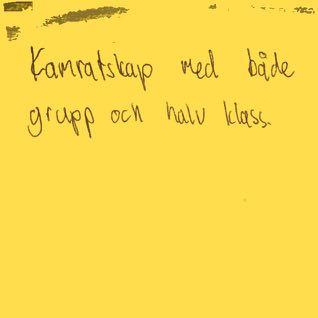 Kamratskap med både
grupp och halv klass.